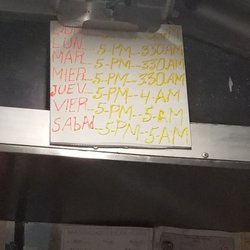 DOM
LUN. 5-PM--330AM
MAR. 5-PM--330AM
MIER 5-PM--330AM
JUEV. 5-PM--4AM
VIER- 5-PM--5AM
SABAd.--5-PM--5AM